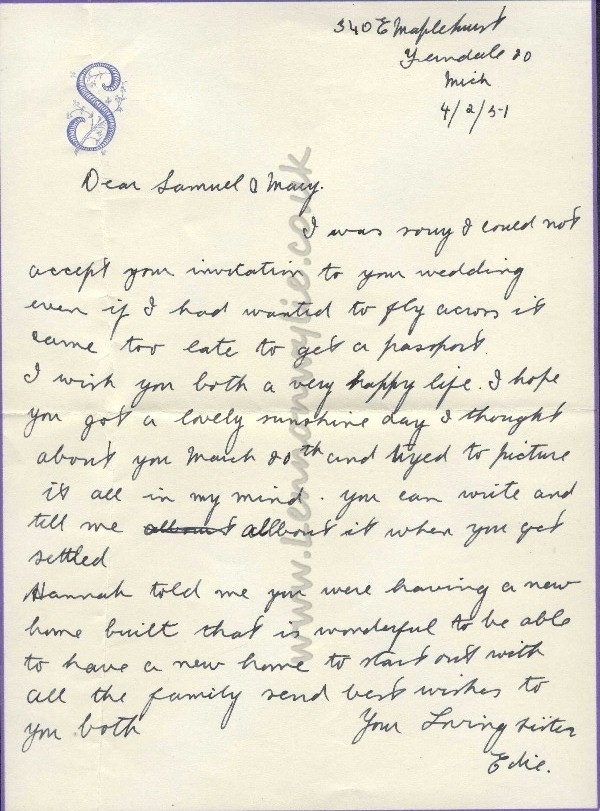 340 E Maplehurst
Ferndale 20
Mich
4/2/51
S
Dear Samuel & Mary.
I was sorry I could not
accept your invitation to your wedding
even if I had wanted to fly across it
came too late to get a passport.
I wish you both a very happy life. I hope
you got a lovely sunshine day I thought
about you March 20th and tryed to picture
it all in my mind. you can write and
tell me allbout allbout it when you get
settled
Hannah told me you were having a new
home built that is wonderful to be able
to have a new home to start out with
all the family send best wishes to
you both Your Loving sister
Edie.